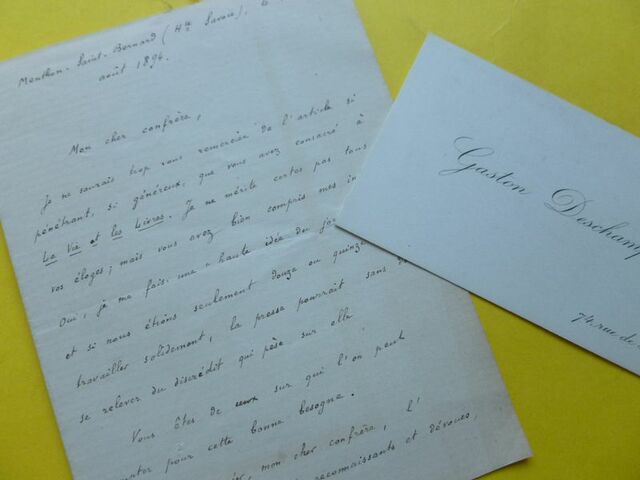 Menthon-Saint-Bernard (Hte Savoie), le
août 1894.
Mon cher confrère,
Je ne saurais trop vous remercier de l'article si
pénétrant, si généreux, que vous avez consacré à
La Vie et les Livres. Je ne mérite certes pas tous
vos éloges; mais vous avez bien compris mes in
Oui, je me fais une haute idée du jou
et si nous étions seulement douze ou quinze
travailler solidement, la presse pourrait sans
se relever du discrédit qui pèse sur elle
Vous êtes de ceux sur qui l'on peut
pour cette bonne besogne.
mon cher confrère, l'
reconnaissants et dévoués,
Gaston Deschamp
74, rue de